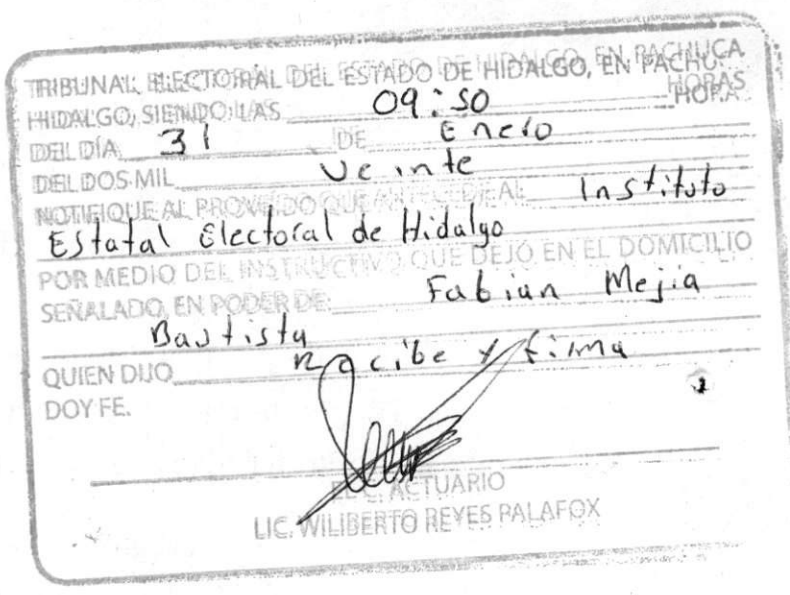 TRIBUNAL ELECTORAL DEL ESTADO DE HIDALGO, EN PACHUCA
HIDALGO, SIENDO LAS 09:50 HORAS
DEL DÍA 31 DE Enero
DEL DOS MIL Veinte
NOTIFIQUE AL PROVEIDO QUE ANTECEDE AL Instituto
Estatal Electoral de Hidalgo
POR MEDIO DEL INSTRUCTIVO QUE DEJÓ EN EL DOMICILIO
SEÑALADO, EN PODER DE: Fabian Mejia
Bautista
QUIEN DIJO Recibe y firma
DOY FE.
EL C. ACTUARIO
LIC. WILIBERTO REYES PALAFOX